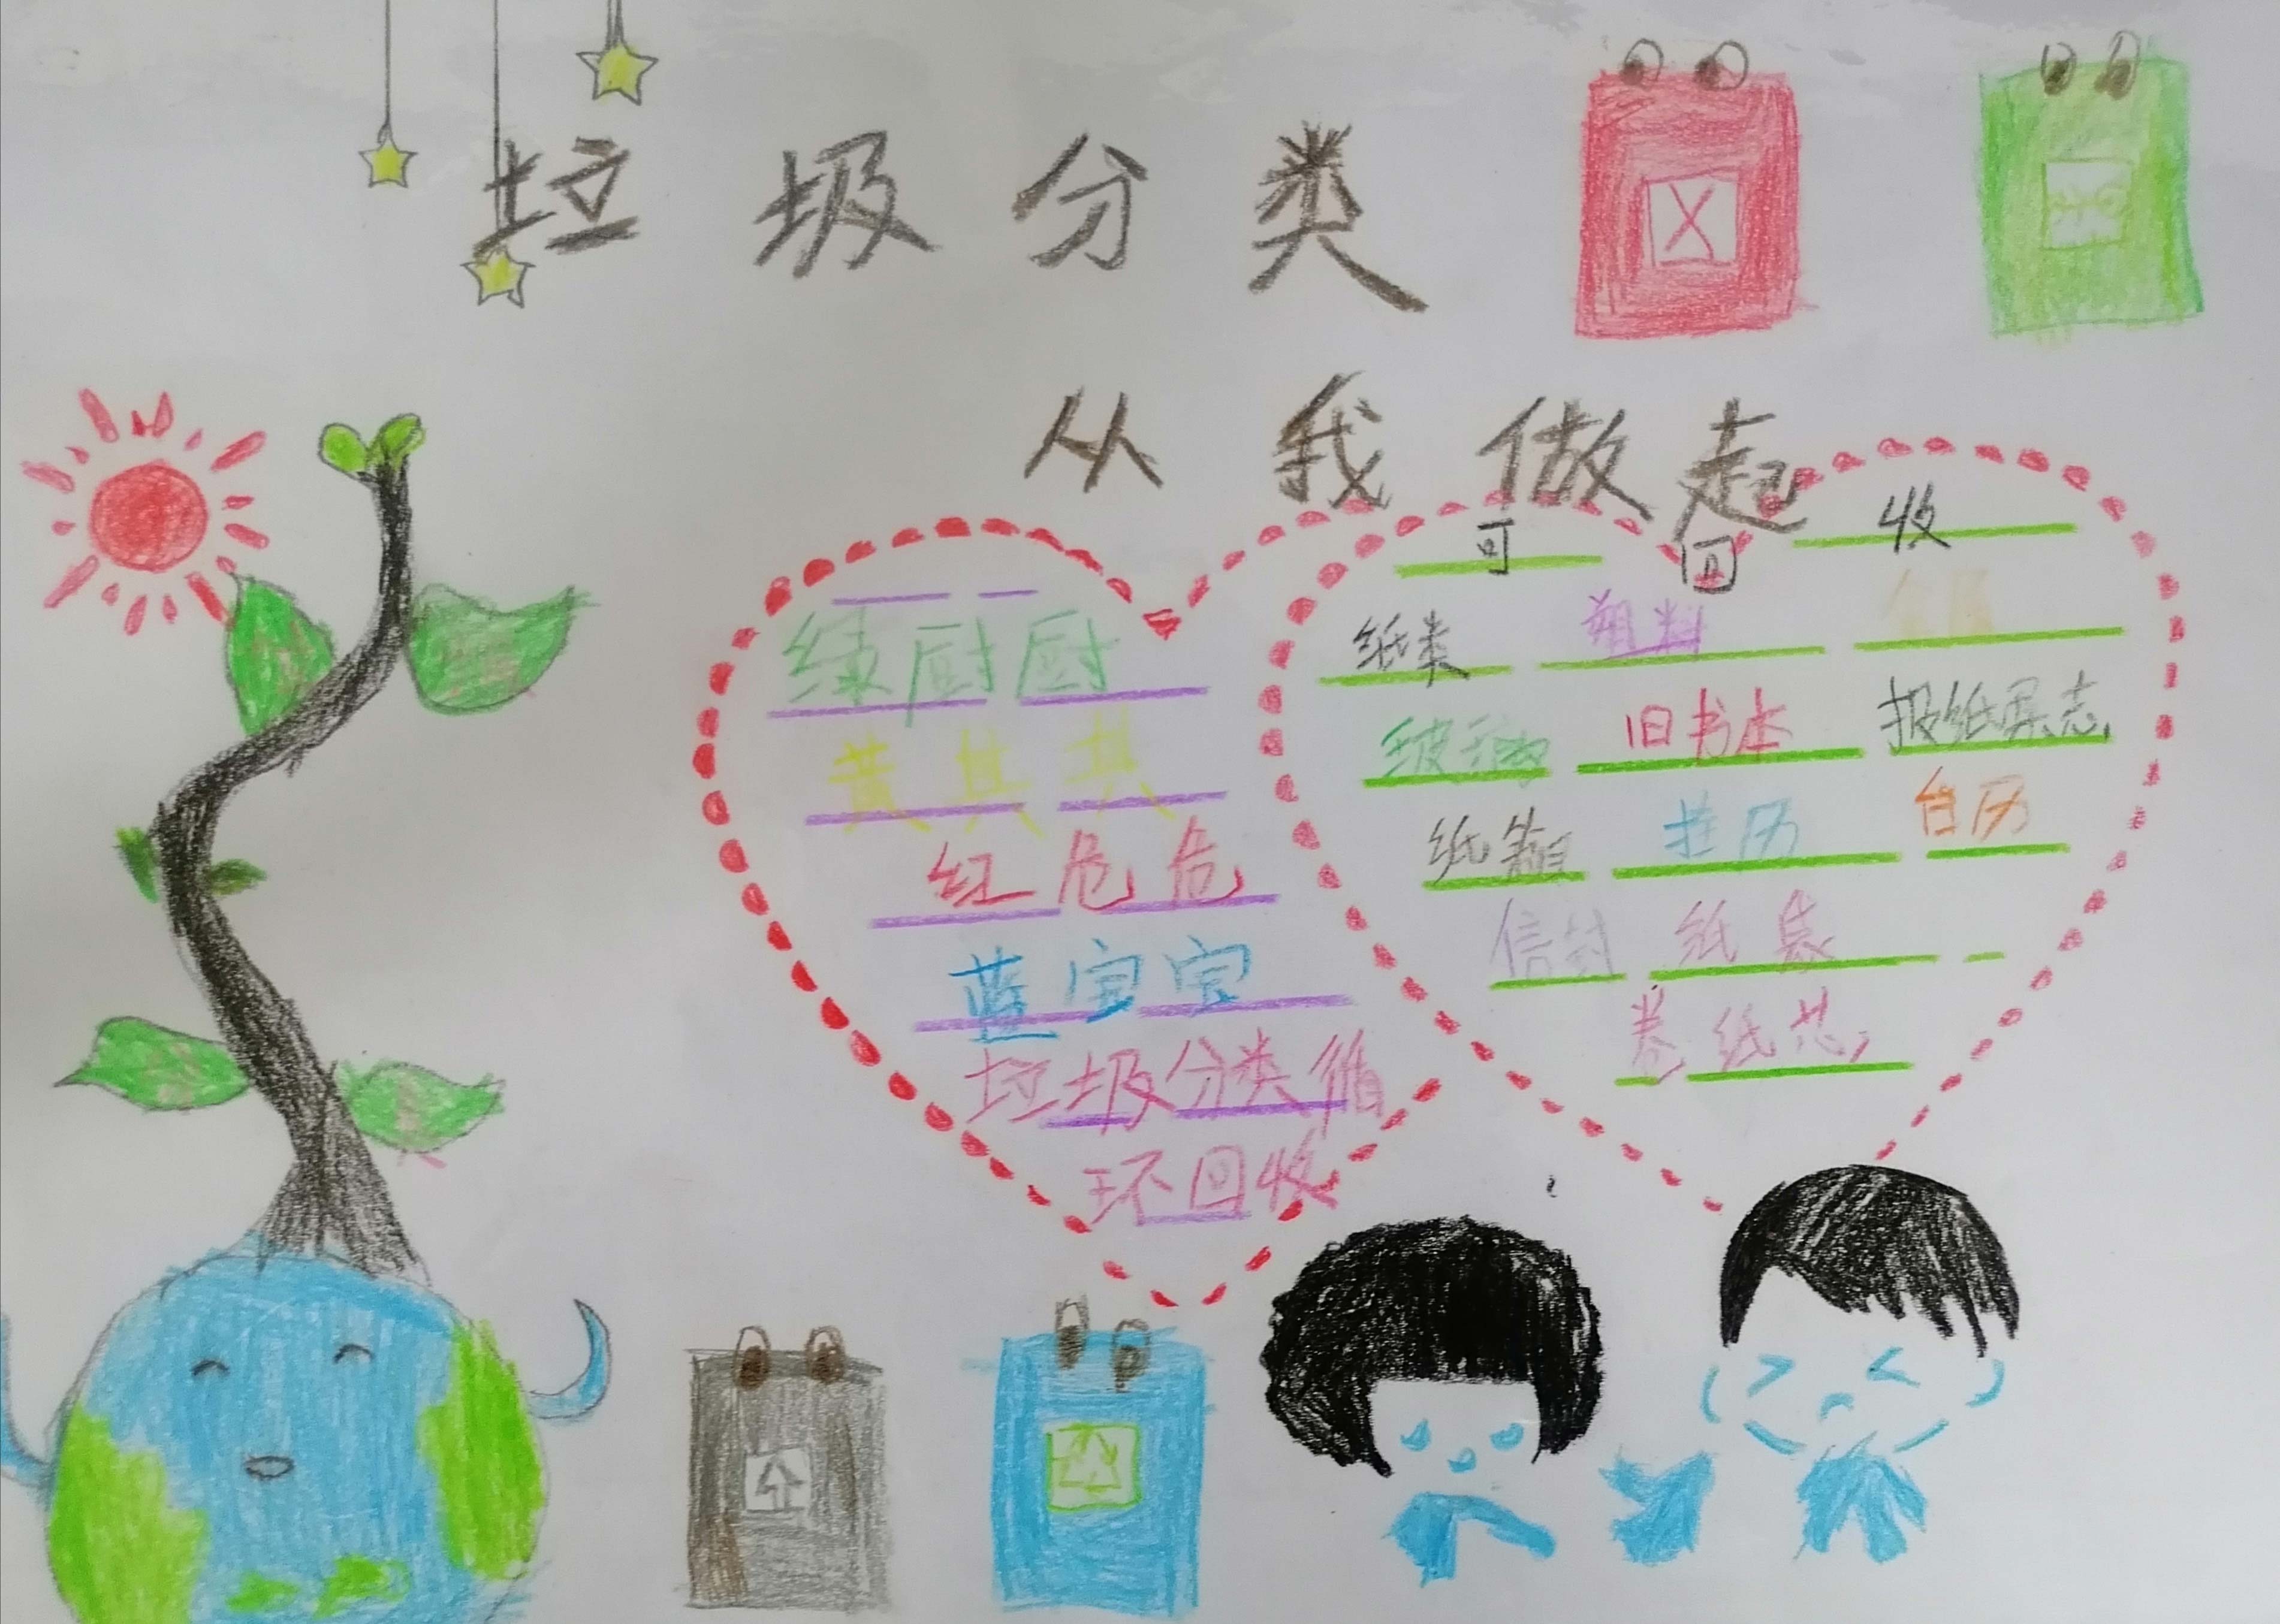 垃圾分类
从我做起
绿厨厨
黄其其
红危危
蓝宝宝
垃圾分类循
环回收
可回收
纸类 塑料
玻璃 旧书本 报纸杂志
纸箱 挂历 台历
信封 纸袋
卷纸芯